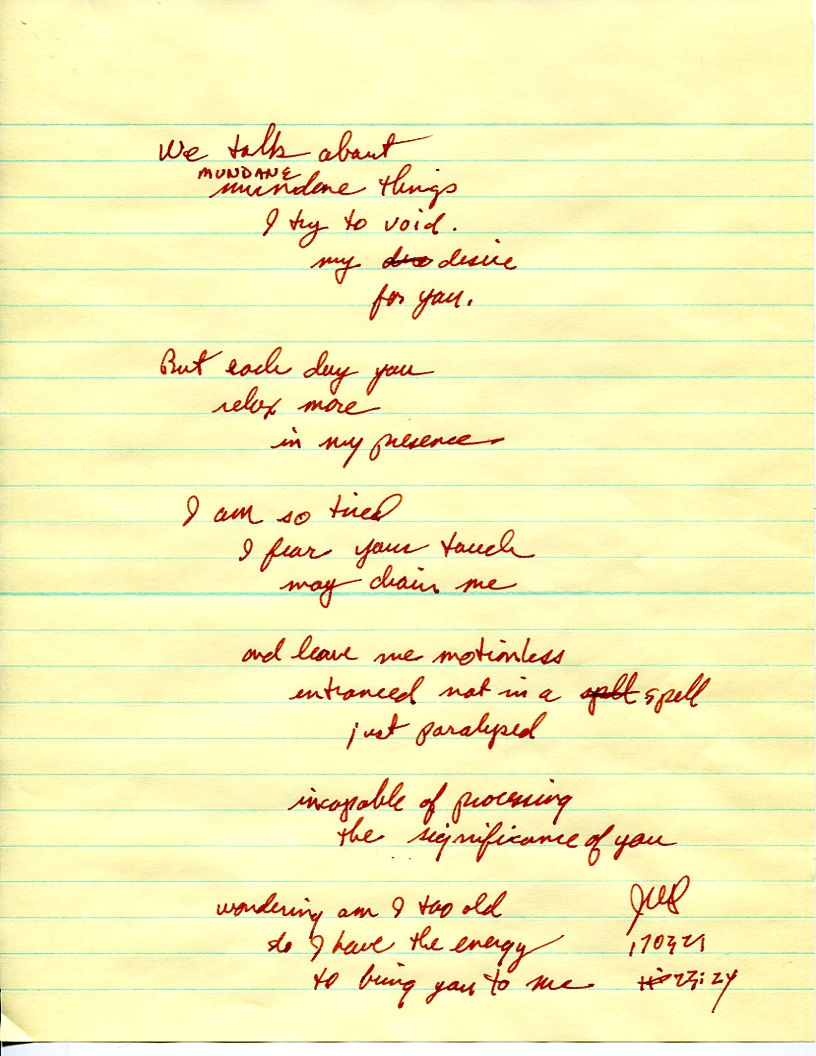 We talk about
MUNDANE
mundane things
I try to void.
my desire
for you.
But each day you
relax more
in my presence
I am so tired
I fear your touch
may drain me
and leave me motionless
entranced not in a spell spell
just paralyzed
incapable of processing
the significance of you
wondering am I too old
do I have the energy
to bring you to me
170321
23:24